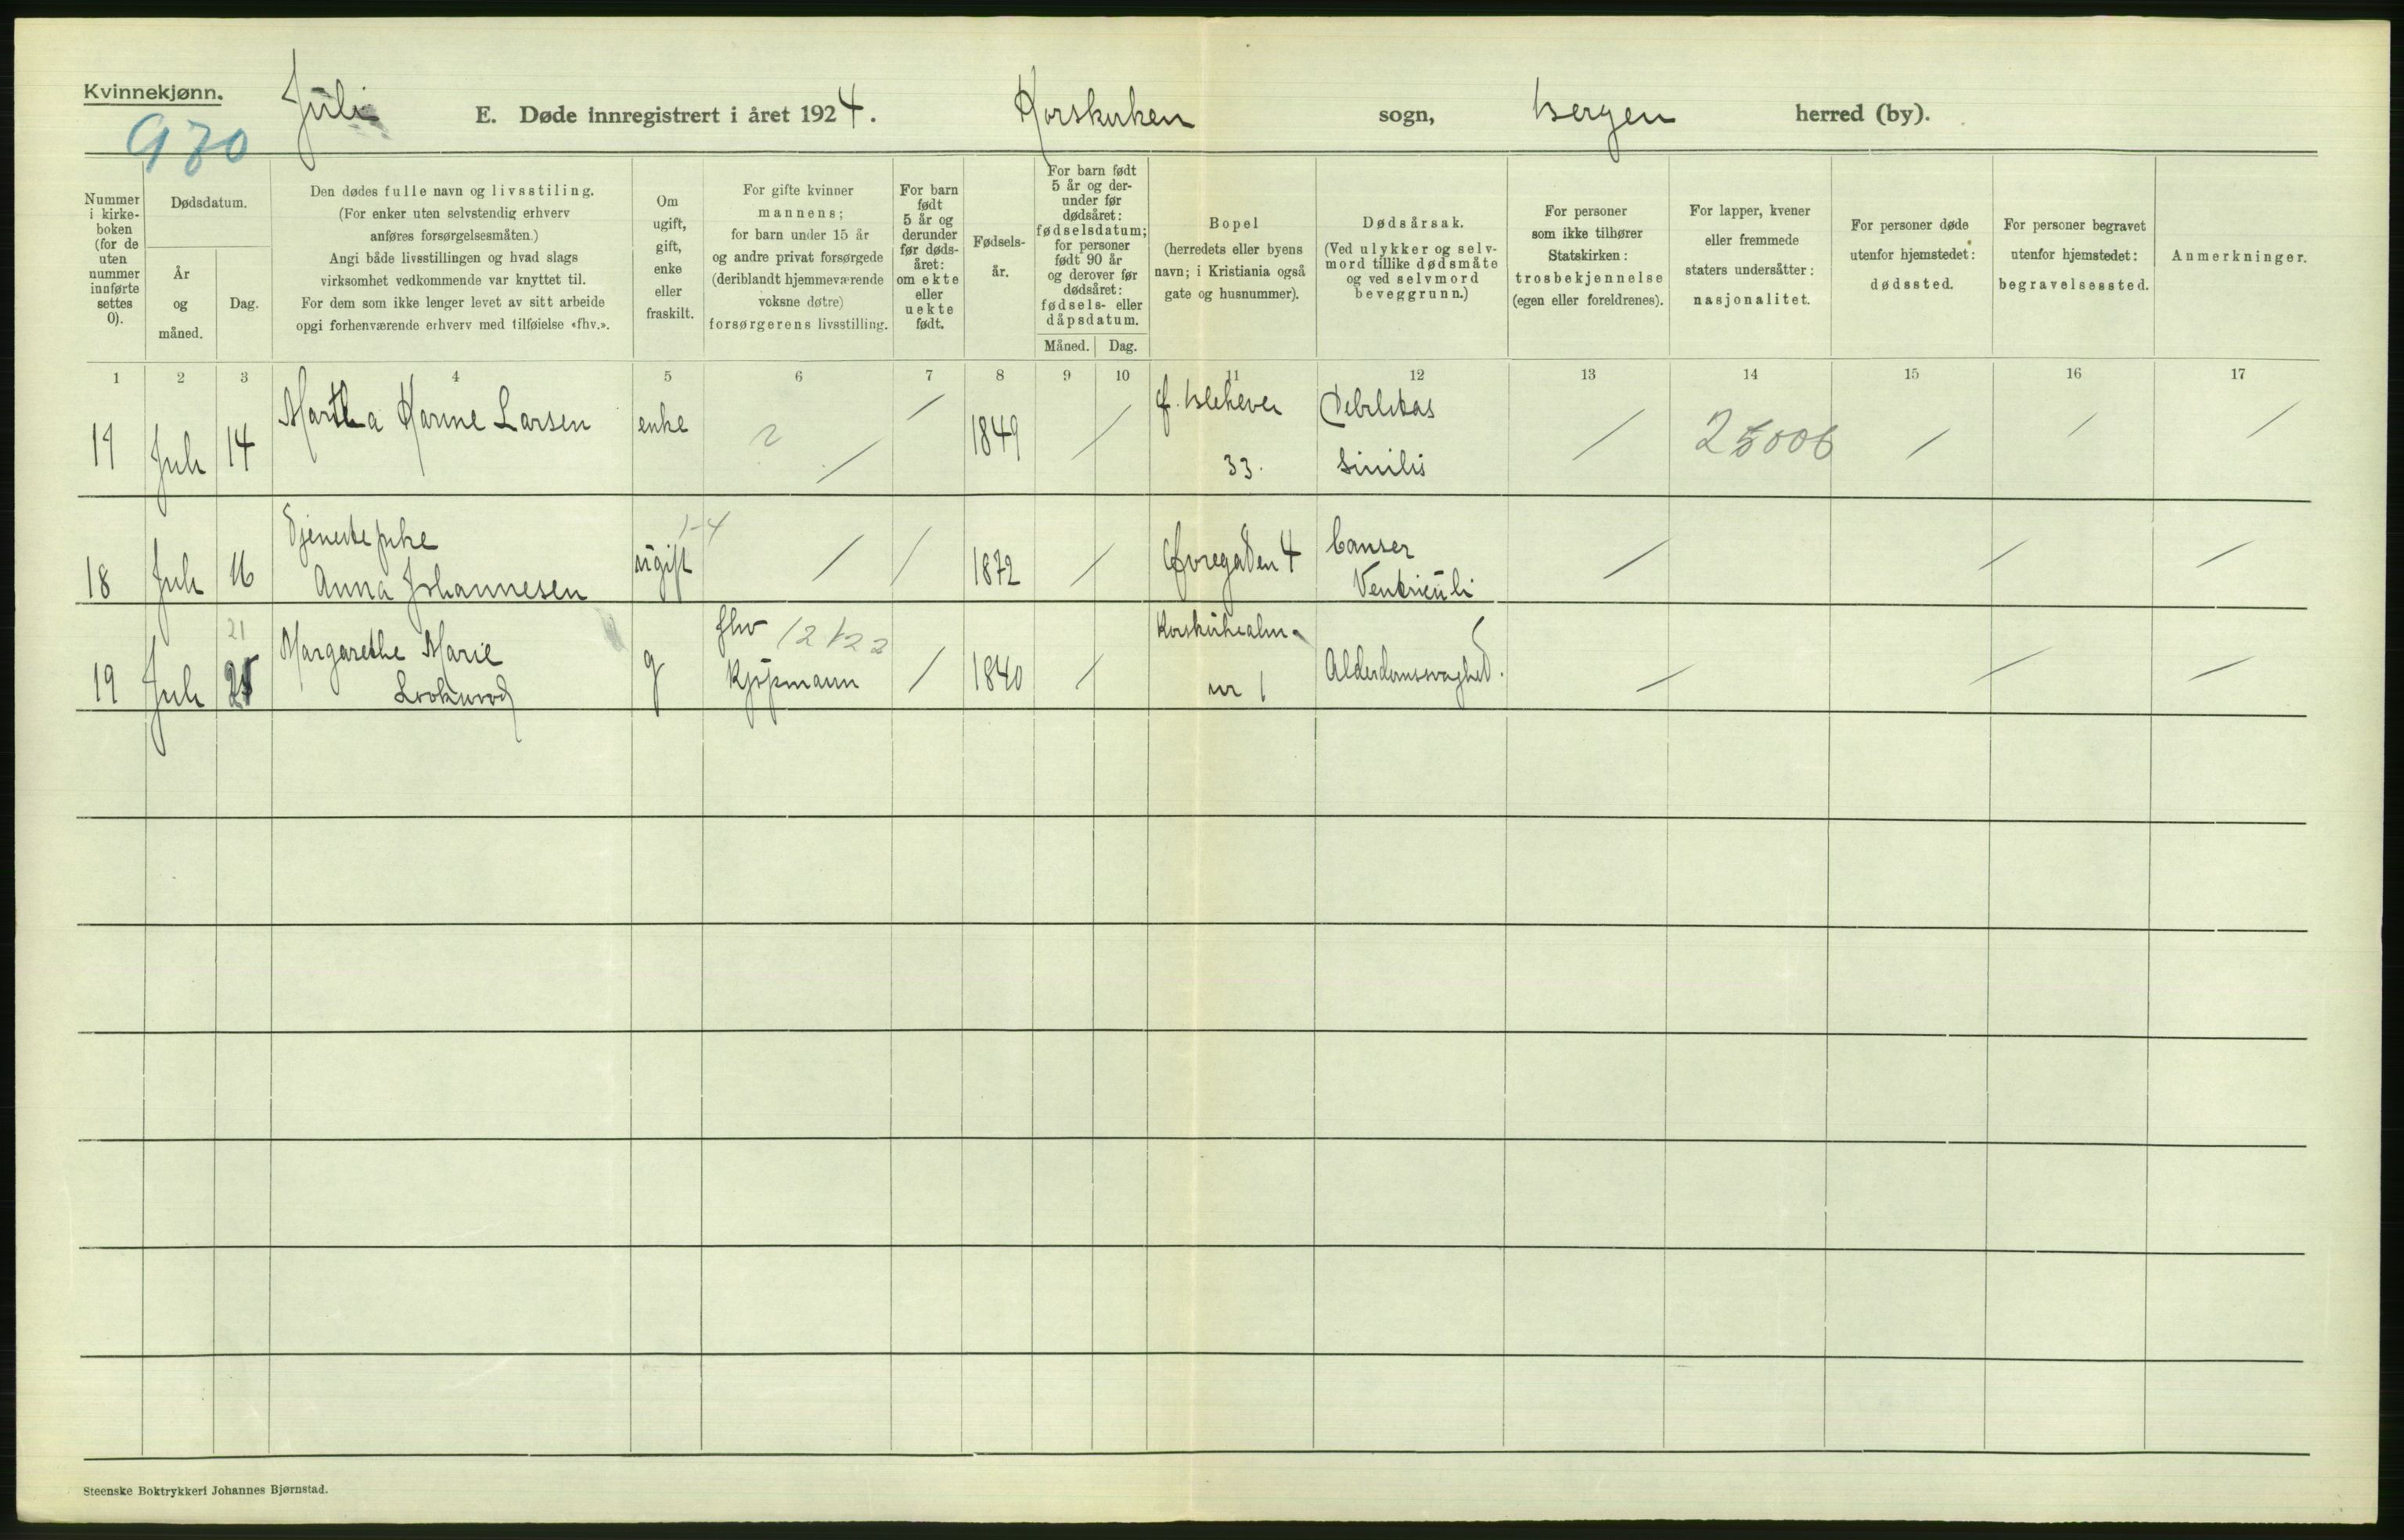 Kvinnekjønn.
Juli
E. Døde innregistrert i året 1924.
Korskirken sogn, Bergen herred (by).
970
Nummer i kirke- boken (for de uten nummer innførte settes 0).
Dødsdatum.
År og måned.
Dag.
Den dødes fulle navn og livsstiling.
(For enker uten selvstendig erhverv
anføres forsørgelsesmåten.)
Angi både livsstillingen og hvad slags
virksomhet vedkommende var knyttet til.
For dem som ikke lenger levet av sitt arbeide
opgi forhenværende erhverv med tilføielse «fhv.».
Om
ugift,
gift,
enke
eller
fraskilt.
For gifte kvinner
mannens;
for barn under 15 år
og andre privat forsørgede
(deriblandt hjemmeværende
voksne døtre)
forsørgerens livsstilling.
For barn
født
5 år og
derunder
før døds-
året:
om ekte
eller
uekte
født.
Fødsels-
år.
For barn født
5 år og der-
under før
dødsåret:
fødselsdatum;
for personer
født 90 år
og derover før
dødsåret:
fødsels- eller
dåpsdatum.
Måned. Dag.
Bopel
(herredets eller byens
navn; i Kristiania også
gate og husnummer).
Dødsårsak.
(Ved ulykker og selv-
mord tillike dødsmåte
og ved selvmord
beveggrunn.)
For personer
som ikke tilhører
Statskirken:
trosbekjennelse
(egen eller foreldrenes).
For lapper, kvener
eller fremmede
staters undersåtter:
nasjonalitet.
For personer døde
utenfor hjemstedet:
dødssted.
For personer begravet
utenfor hjemstedet:
begravelsessted.
Anmerkninger.
1 2 3 4 5 6 7 8 9 10 11 12 13 14 15 16 17
Martha Karine Larsen
17 Juli 14 enke 1849 33. Debilitas
sinilis
Tjenestepike
18 Juli 16 Anna Johannesen ugift 1-4 1872 Øvregaden 4 Canser
Ventriculi
21
19 Juli Margarethe Marie g fhv
Kjøpmann 1840 nr 1 Alderdomssvaghed.
Steenske Boktrykkeri Johannes Bjørnstad.